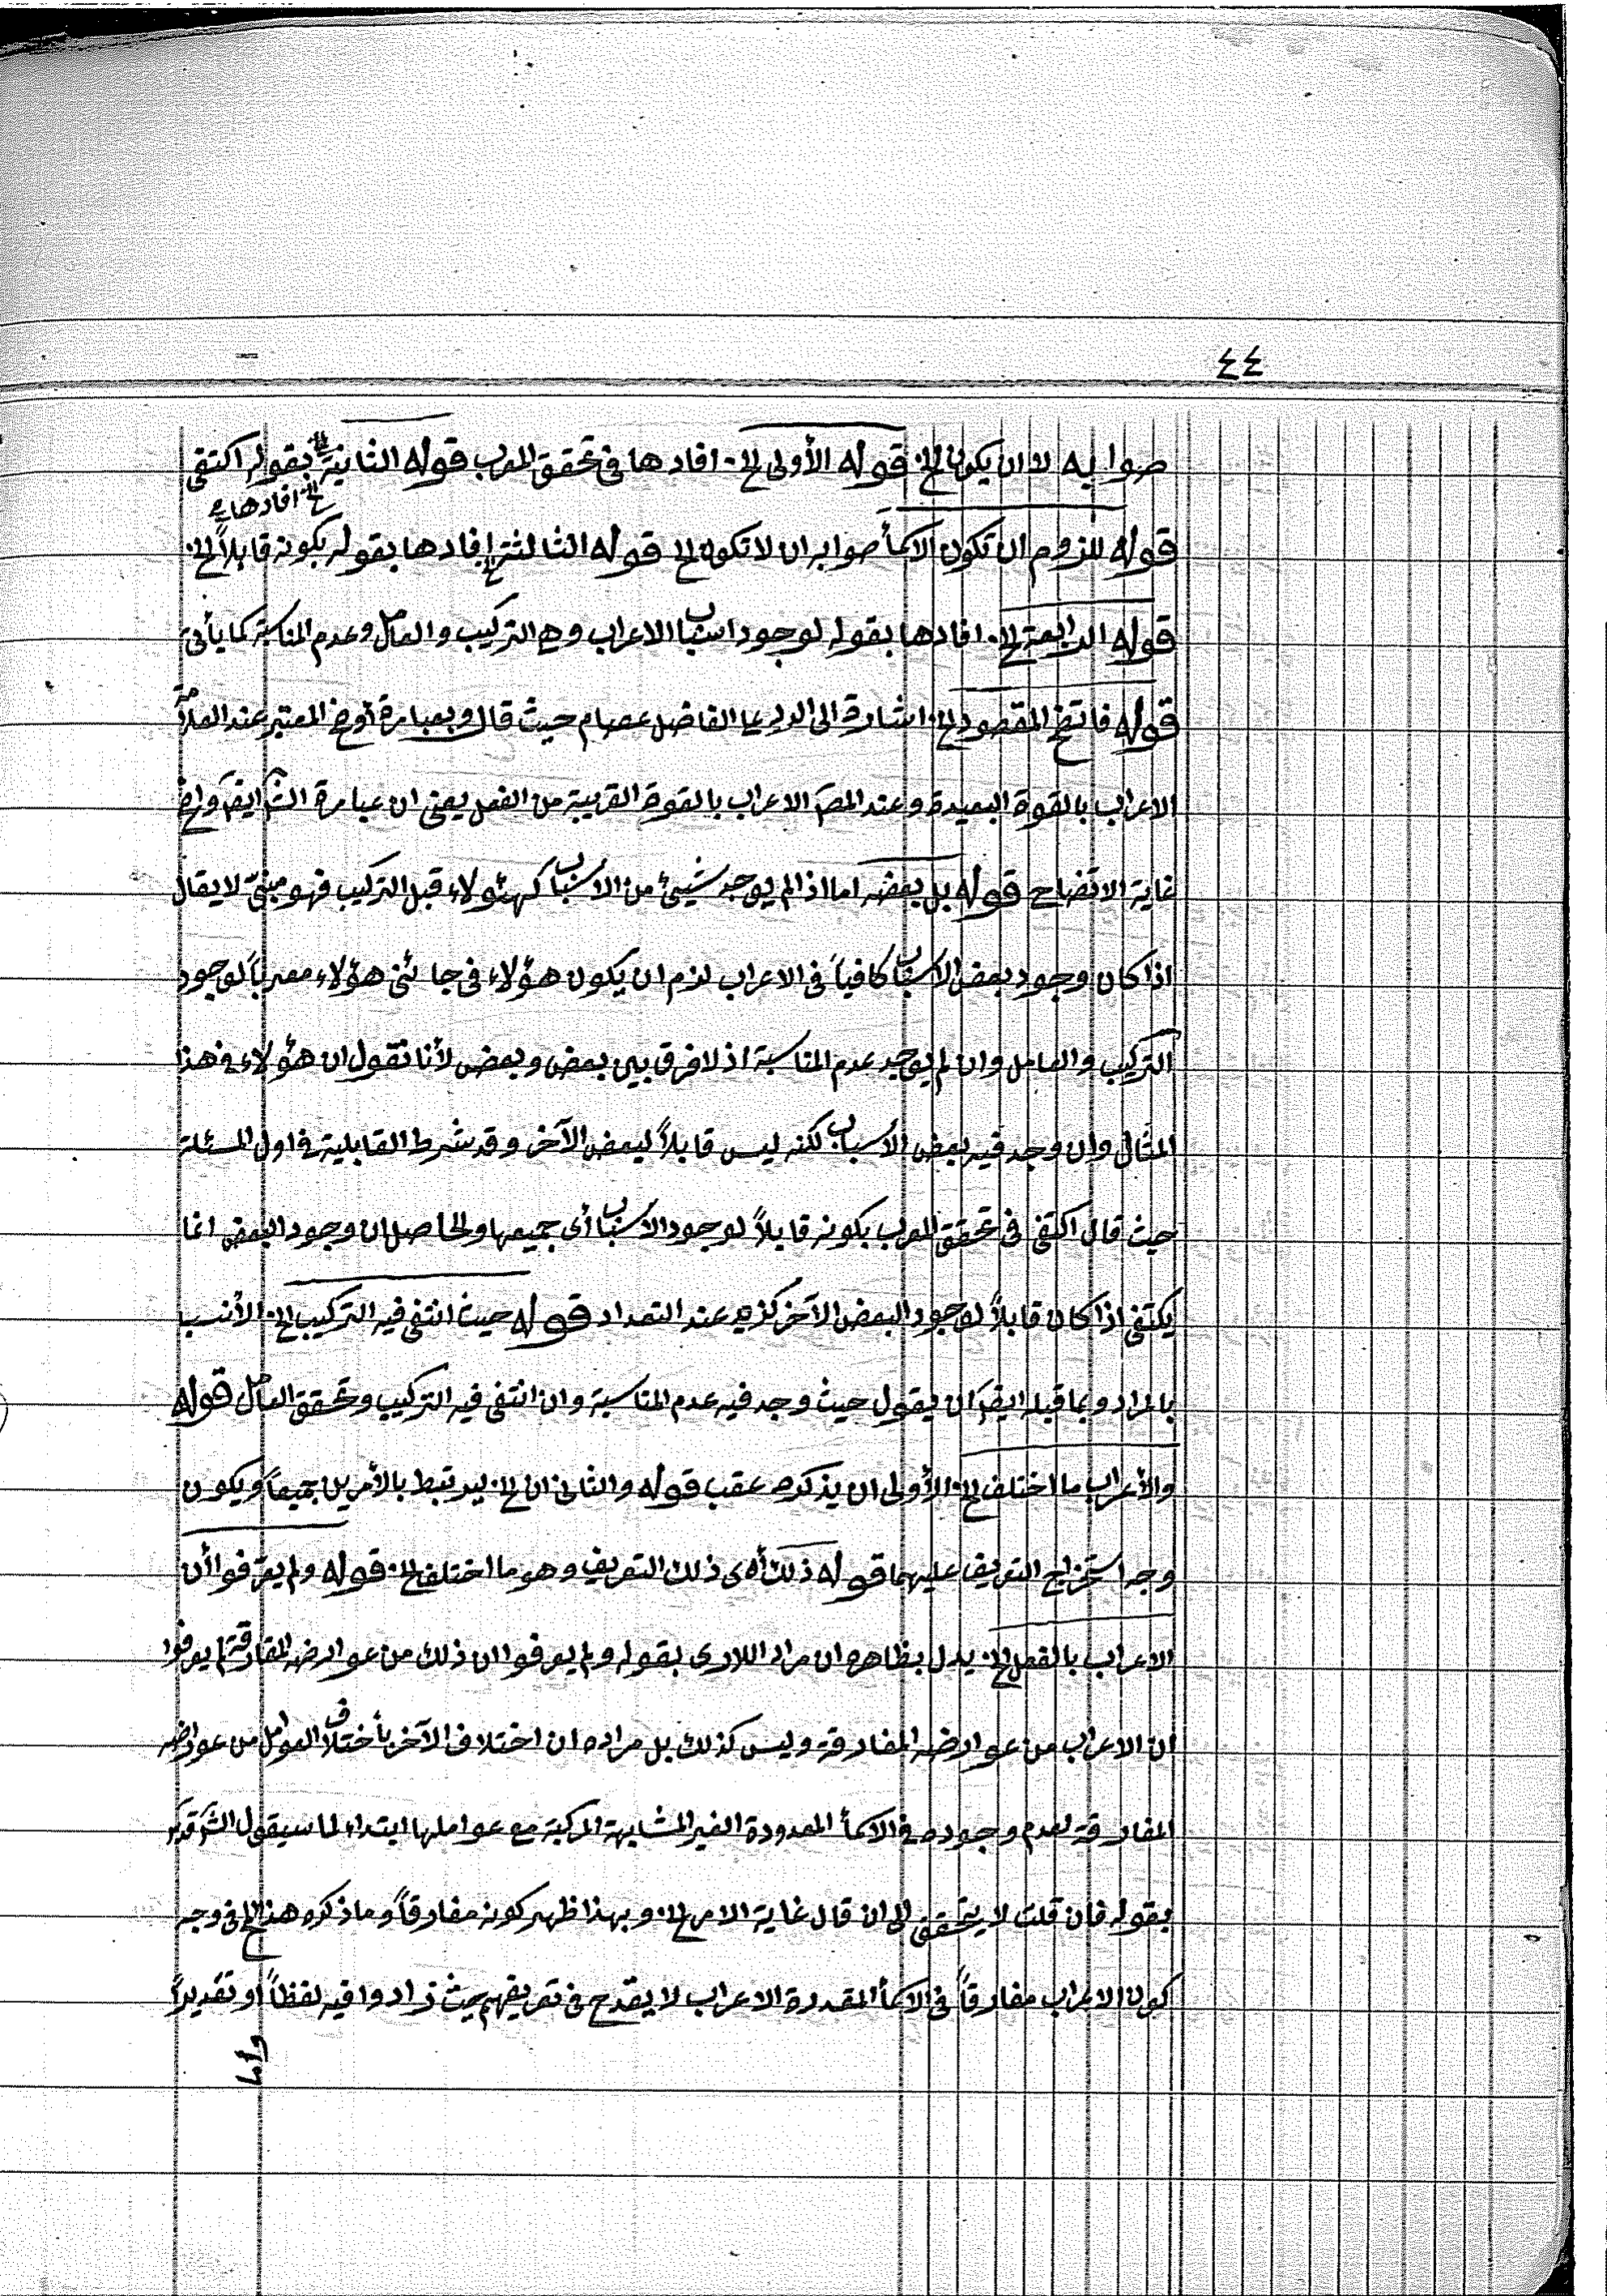 ٤٤
صوابه لان يكون الخ. قوله الأولى الخ. افادها فى تحقق المعرب قوله الثانية الخ بقوله اكتفى
الخ. افادها
قوله للزوم ان تكون الاسمأ صوابه ان لا تكون الخ قوله الثالثة الخ افادها بقوله بكونه قابلاً الخ.
قوله الرابعة الخ. افادها بقوله لوجود اسباب الاعراب وهى التركيب والعامل وعدم المناسبة كما يأتى
قوله فاتضح المقصود الخ. اشارة الى الرد على الفاضل عصام حيث قال وبعبارة أوضح المعتبر عند العلامة
الاعراب بالقوة البعيدة وعند المصـ الاعراب بالقوة القريبة من الفعل يعنى ان عبارة الشـ ايضـ واضح
غاية الاتضاح قوله بل بعضه اما اذا لم يوجد شيئ من الاسباب كهئولاء قبل التركيب فهو مبنىّ لا يقال
اذا كان وجود بعض الاسباب كافياً فى الاعراب لزم ان يكون هؤلاء فى جائنى هؤلاء معرباً لوجود
التركيب والعامل وان لم يوجد عدم المناسبة اذ لا فرق بين بعض وبعض لأنا نقول ان هؤلاء فى هذا
المثال وان وجد فيه بعض الاسباب لكنه ليس قابلاً لبعض الآخر وقد شرط القابلية فى اول المسئلة
حيث قال اكتفى فى تحقق المعرب بكونه قابلاً لوجود الاسباب أى جميعها والحاصل ان وجود البعض انما
يكتفى اذا كان قابلاً لوجود البعض الآخر كزيد عند التعداد قوله حيث انتفى فيه التركيب الخ. الأنسب
بالمراد وبما قبله ايضـ ان يقول حيث وجد فيه عدم المناسبة وان انتفى فيه التركيب وتحقق العامل قوله
والأعراب ما اختلف الخ. الأولى ان يذكره عقب قوله والثانى ان الخ. ليرتبط بالأمرين جميعاً ويكون
وجه استخراج التعريف عليهما قوله ذلك أى ذلك التعريف وهو ما اختلف الخ. قوله ولم يعرفوا أن
الاعراب بالفعل الخ. يدل بظاهره ان مراد اللارى بقوله ولم يعرفوا ان ذلك من عوارضه المفارقة لم يعرفوا
ان الاعراب من عوارضه المفارقة وليس كذلك بل مراده ان اختلاف الآخر بأختلاف العوامل من عوارضه
المفارقة لعدم وجوده فى الاسمأ المعدودة الغير المشابهة المركبة مع عواملها ابتداء لما سيقول الشـ
بقوله فان قلت لا يتحقق الى ان قال غاية الامر الخ. وبهذا ظهر كونه مفارقاً وما ذكره هذا الخ فى وجه
كون الاعراب مفارقاً فى الاسمأ المقدرة الاعراب لا يقدح فى تعريفهم بحيث زادوا فيه لفظاً او تقديراً
واما